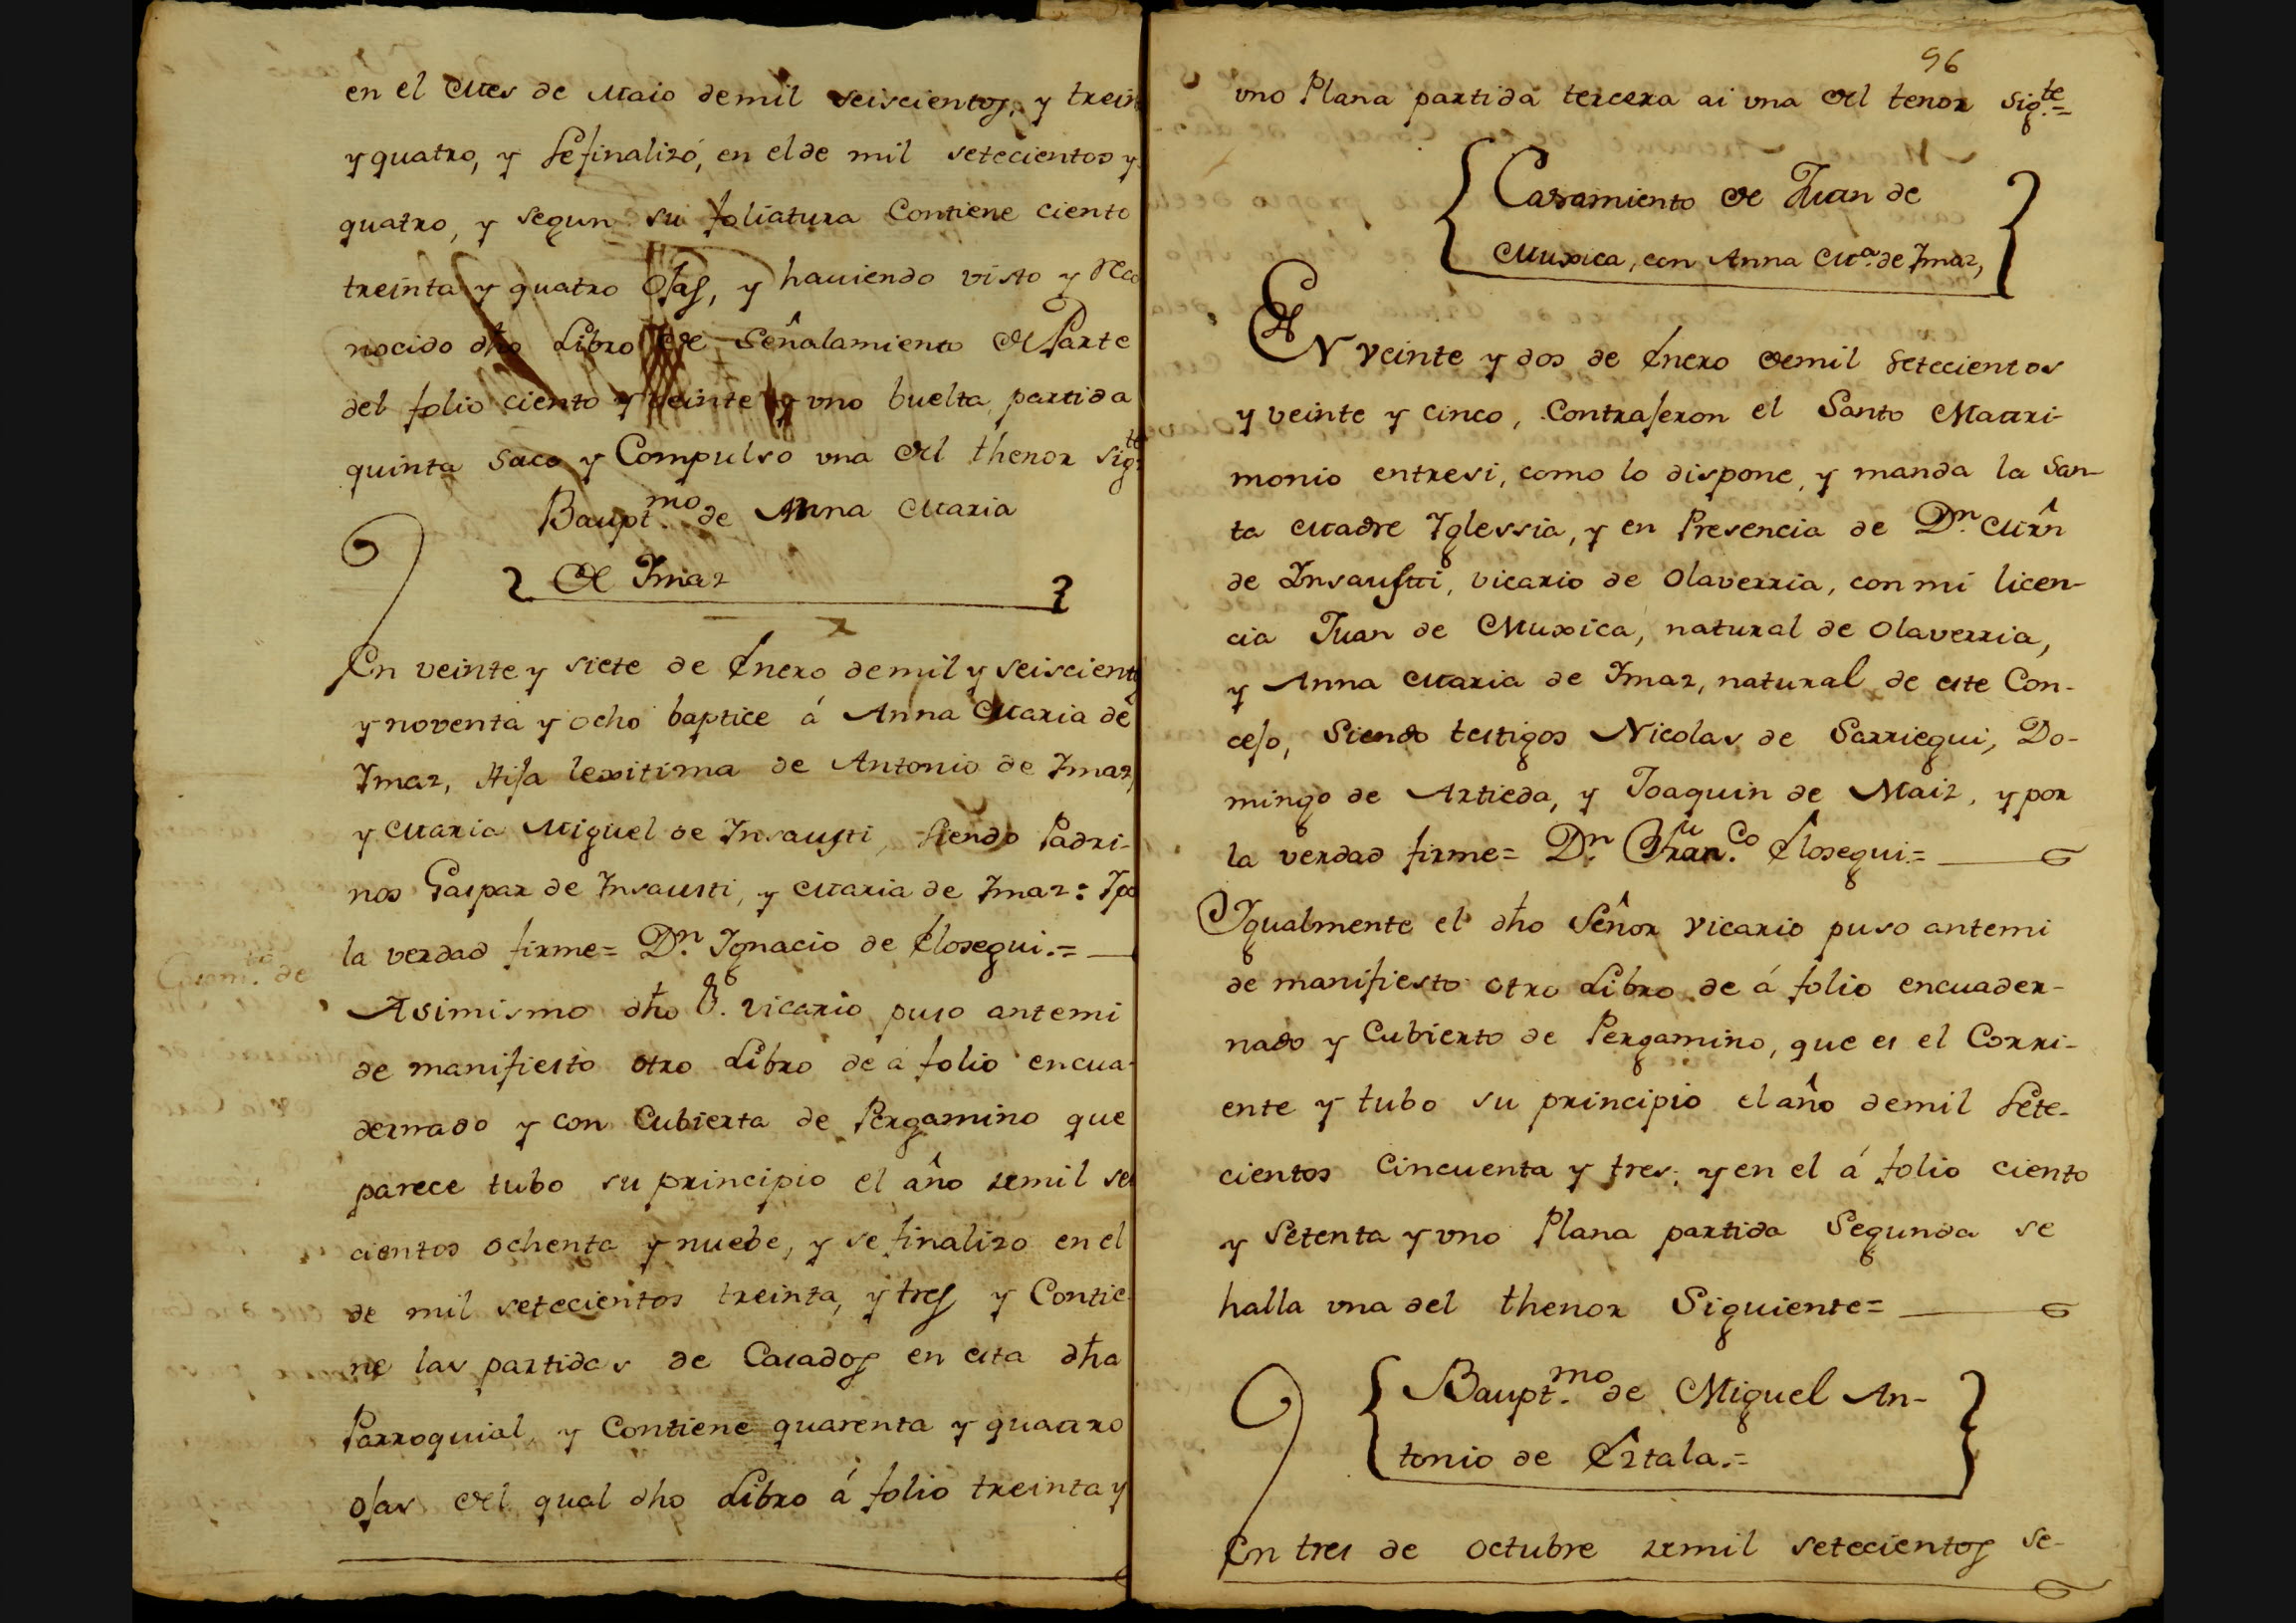 en el Mes de Maio demil seiscientos, y trein
y quatro, y sefinalizó, en el de mil setecientos y
quatro, y segun su foliatura Contiene ciento
treinta y quatro ojas, y hauiendo visto y Reco
nocido dho Libro de Señalamiento de Parte
del folio ciento y veinte y vno buelta, partida
quinta saco y Compulso vna del thenor sigte
Bauptmo de Anna Maria
de Imaz
En veinte y siete de Enero demil y seiscientos
y noventa y ocho baptice á Anna Maria de
Imaz, Hija lexitima de Antonio de Imaz,
y Maria Miguel de Insausti, siendo Padri-
nos Gaspar de Insausti, y Maria de Imaz: Ipo
la verdad firme= Dn. Ignacio de Elosegui.=
Asimismo dho Sr. vicario puso antemi
de manifiesto otro Libro de á folio encua-
dernado y con Cubierta de Pergamino que
parece tubo su principio el año demil sei
cientos ochenta y nuebe, y se finalizo en el
de mil setecientos treinta, y tres y Contie-
ne las partidas de Casados en esta dha
Parroquial, y Contiene quarenta y quatro
ojas del qual dho Libro á folio treinta y
96
vno Plana partida tercera ai vna del tenor sigte=
Casamiento de Juan de
Muxica, con Anna Ma. de Imaz,
En veinte y dos de Enero demil setecientos
y veinte y cinco, Contrajeron el Santo Matri-
monio entresi, como lo dispone, y manda la San-
ta Madre Yglessia, y en Presencia de Dn. Mrn
de Insausti, vicario de Olaverria, con mi licen-
cia Juan de Muxica, natural de Olaverria,
y Anna Maria de Imaz, natural de este Con-
cejo, Siendo testigos Nicolas de Sarriegui, Do-
mingo de Artieda, y Joaquin de Maiz, y por
la verdad firme= Dn. Franco. Elosegui.=
Igualmente el dho Señor vicario puso antemi
de manifiesto otro Libro de á folio encuader-
nado y Cubierto de Pergamino, que es el Corri-
ente y tubo su principio el año demil sete-
cientos Cincuenta y tres; y en el á folio ciento
y setenta y vno Plana partida Segunda se
halla vna del thenor Siguiente=
Bauptmo. de Miguel An-
tonio de Eztala.=
En tres de octubre demil setecientos se-